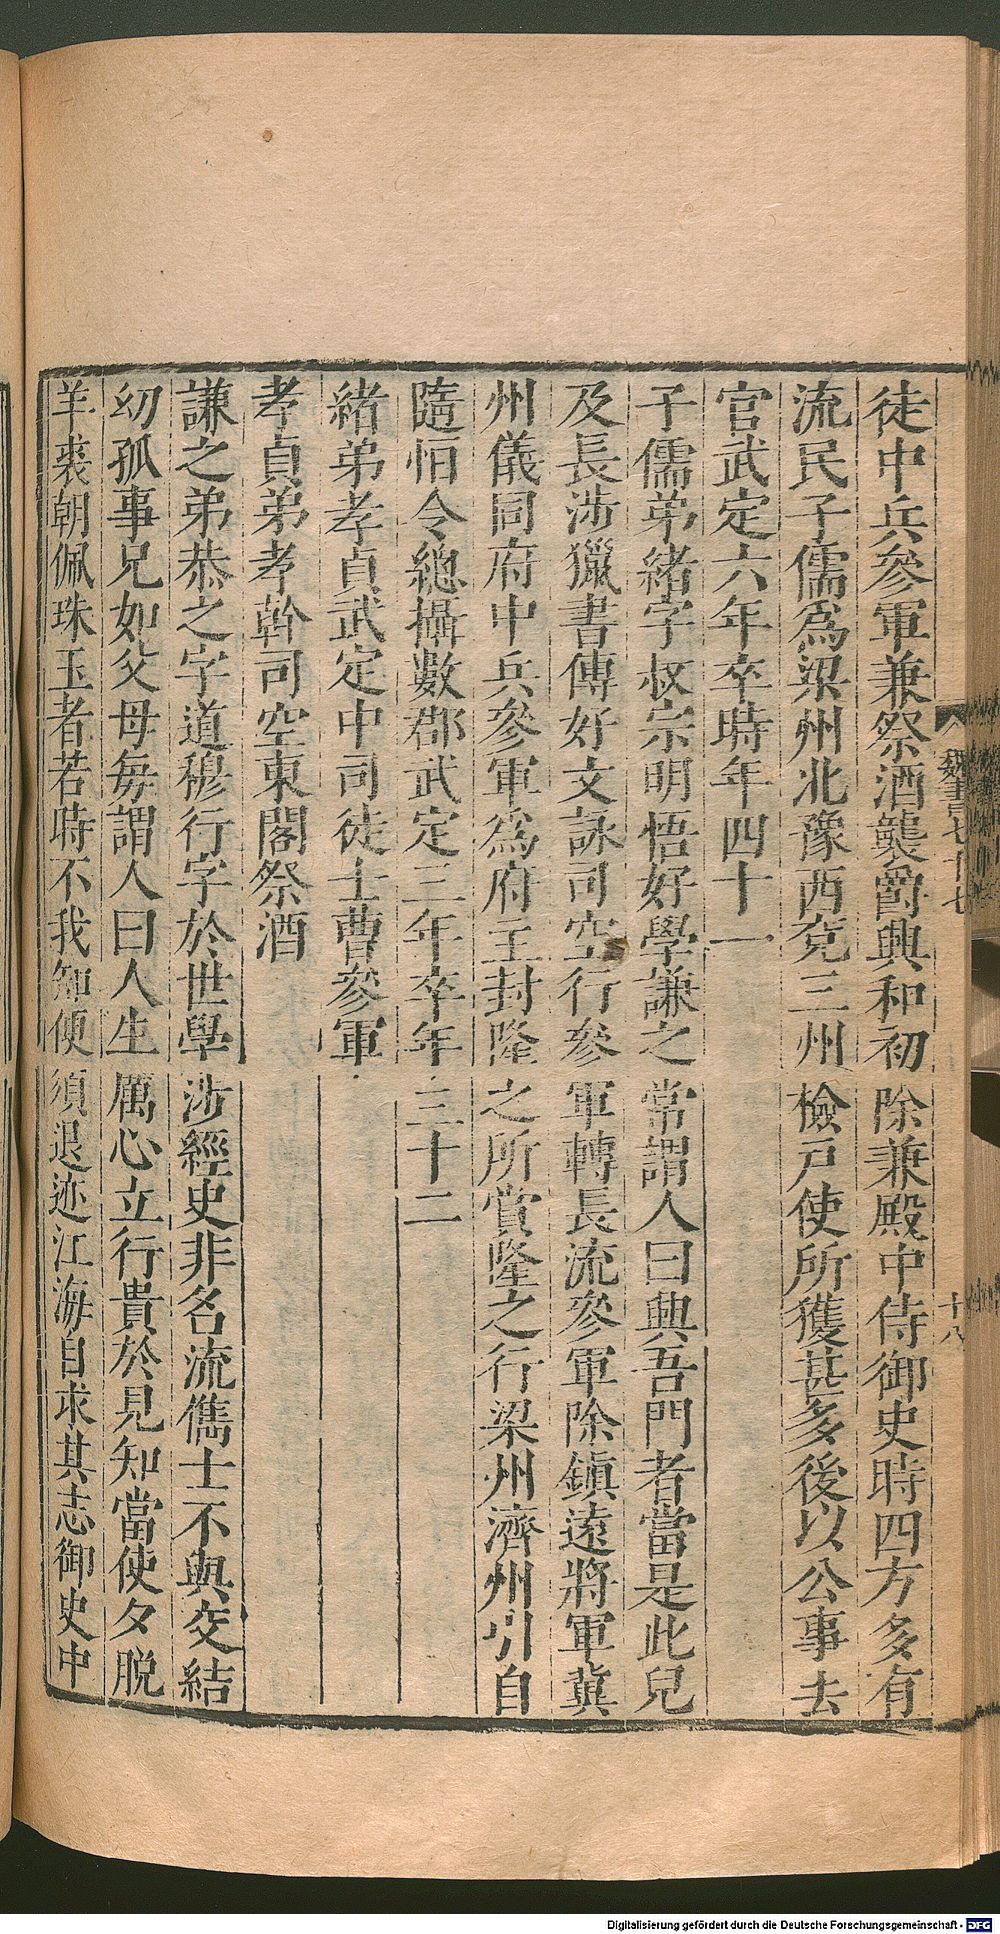 徒中兵參軍兼祭酒襲爵興和初除兼殿中侍御史時四方多有
流民子儒爲梁州北豫西兗三州檢戸使所獲甚多後以公事去
官武定六年卒時年四十一
子儒弟緒字叔宗明悟好學謙之常謂人曰興吾門者當是此兒
及長涉獵書傳好文詠司空行參軍轉長流參軍除鎮遠將軍冀
州儀同府中兵參軍爲府王封隆之所賞隆之行梁州濟州引自
隨恒令總攝數郡武定三年卒年三十二
緒弟孝貞武定中司徒士曹參軍
孝貞弟孝幹司空東閣祭酒
謙之弟恭之字道穆行字於世學涉經史非名流儁士不與交結
幼孤事兄如父母每謂人曰人生厲心立行貴於見知當使夕脫
羊裘朝佩珠玉者若時不我知便須退迹江海自求其志御史中
魏書七十七
十八
Digitalisierung gefördert durch die Deutsche Forschungsgemeinschaft - DFG